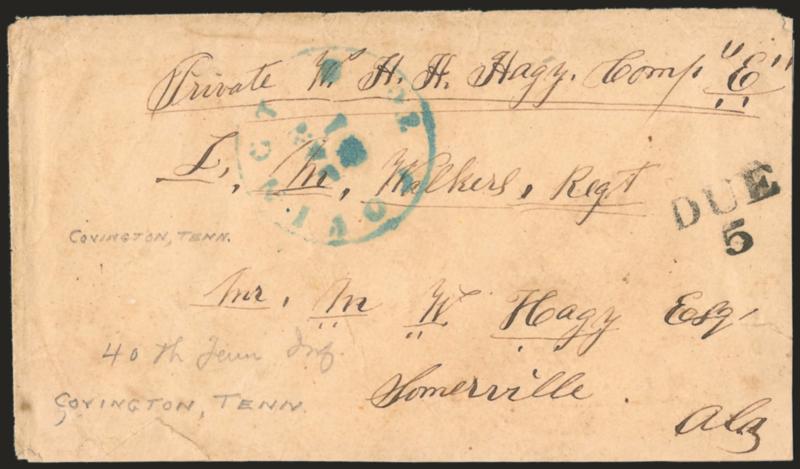 Private W. H. H. Hagy. Comp "E"
L, M, Walkers, Regt
DUE
5
COVINGTON, TENN.
Mr. M W Hagy Esq
40th Tenn Inf.
Somerville.
COVINGTON, TENN.
Ala